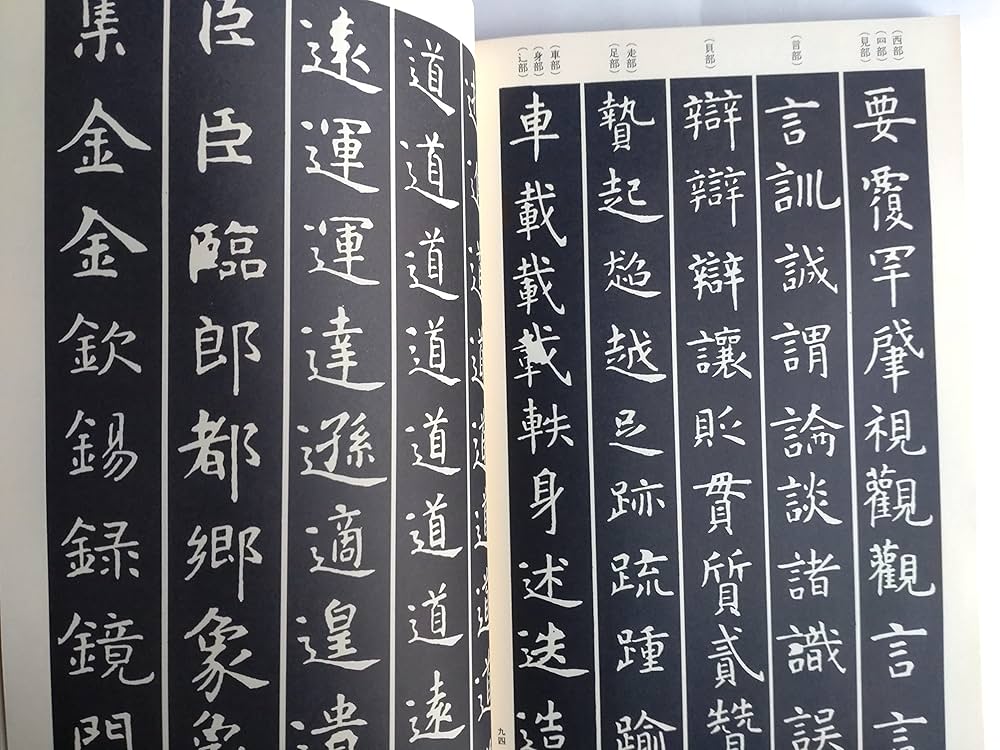 （西部）
（罒部）
（見部）
（言部）
（貝部）
（走部）
（足部）
（車部）
（身部）
（辶部）
要覆罕肇視觀觀言言
言訓誠謂論談諸識誤
辯辯辯讓貶貫質貳贊
贄起超越足跡疏踵踰
車載載載軼身述迭造
九四
道道道道道道道
道道道道道道道遠
遠運運達遜適遑遺
臣臣臨郎都鄉象象
集金金欽錫録鏡門